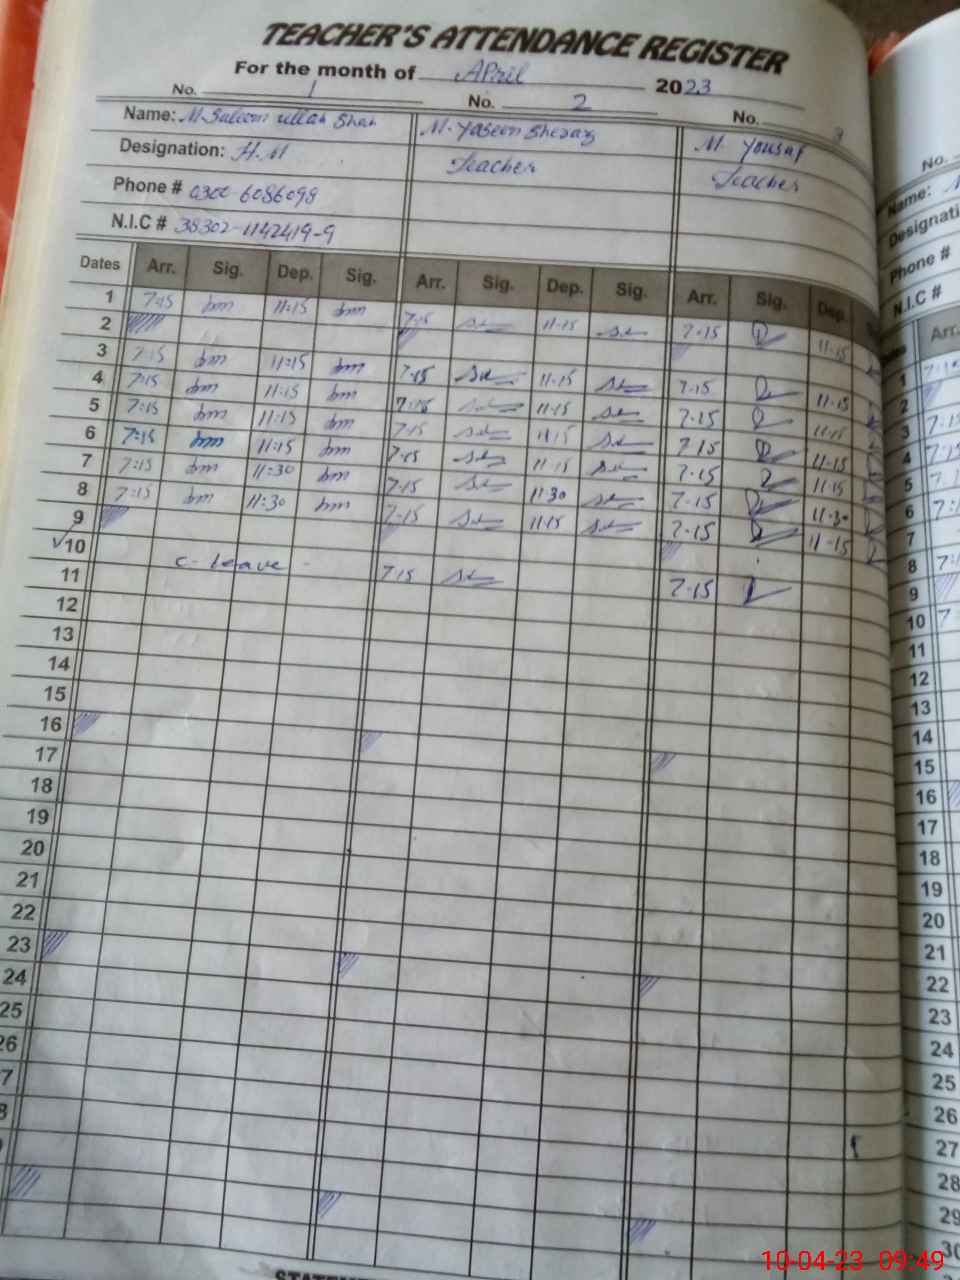 TEACHER'S ATTENDANCE REGISTER
For the month of April 2023
No. 1 No. 2 No. 3
Name: M. Saleem ullah Shah M. Yaseen Sheraz M. Yousaf
Designation: H.M Teacher Teacher
Phone # 0300-6086098
N.I.C # 38302-1142419-9
Dates Arr. Sig. Dep. Sig. Arr. Sig. Dep. Sig. Arr. Sig. Dep.
1 7:15 11:15 7-15 11-15 7-15 11-15
2
3 7:15 11:15 7-15 11-15 7-15 11-15
4 7:15 11:15 7-15 11-15 7-15 11-15
5 7:15 11:15 7-15 11-15 7-15 11-15
6 7:15 11:15 7-15 11-15 7-15 11-15
7 7:15 11:30 7-15 11-30 7-15 11-30
8 7:15 11:30 7-15 11-15 7-15 11-15
9
10 c-leave 7-15 7-15
11
12
13
14
15
16
17
18
19
20
21
22
23
24
25
26
7
8
No.
Name:
Designati
Phone #
N.I.C #
Arr.
1
2
3 7-1
4
5
6
7
8
9
10
11
12
13
14
15
16
17
18
19
20
21
22
23
24
25
26
27
28
29
30
10-04-23 09:49